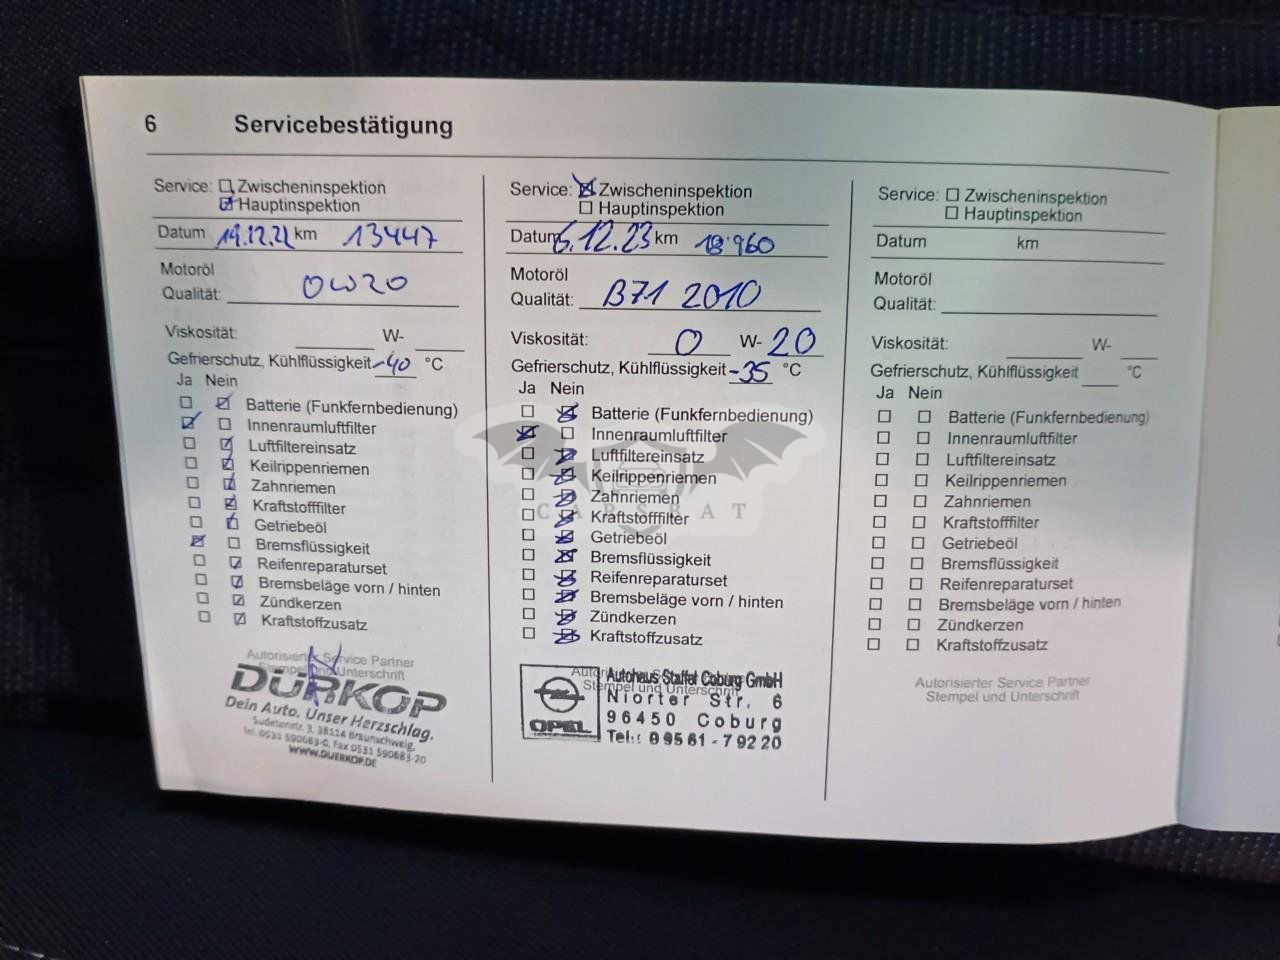 6 Servicebestätigung
Service: Zwischeninspektion
Hauptinspektion
Datum 19.12.22 km 13447
Motoröl
Qualität: 0W20
Viskosität: W-
Gefrierschutz, Kühlflüssigkeit -40 °C
Ja Nein
Batterie (Funkfernbedienung)
Innenraumluftfilter
Luftfiltereinsatz
Keilrippenriemen
Zahnriemen
Kraftstofffilter
Getriebeöl
Bremsflüssigkeit
Reifenreparaturset
Bremsbeläge vorn / hinten
Zündkerzen
Kraftstoffzusatz
Autorisierter Service Partner
Stempel und Unterschrift
DÜRKOP
Dein Auto. Unser Herzschlag.
Sudetenstr. 3, 38114 Braunschweig,
Tel. 0531 590683-0, Fax 0531 590683-20
WWW.DUERKOP.DE
Service: Zwischeninspektion
Hauptinspektion
Datum 6.12.23 km 18.960
Motoröl
Qualität: B71 2010
Viskosität: 0 W- 20
Gefrierschutz, Kühlflüssigkeit -35 °C
Ja Nein
Batterie (Funkfernbedienung)
Innenraumluftfilter
Luftfiltereinsatz
Keilrippenriemen
Zahnriemen
Kraftstofffilter
Getriebeöl
Bremsflüssigkeit
Reifenreparaturset
Bremsbeläge vorn / hinten
Zündkerzen
Kraftstoffzusatz
Stempel und Unterschrift
OPEL
Autohaus Staffel Coburg GmbH
Niorter Str. 6
96450 Coburg
Tel.: 09561-79220
Service: Zwischeninspektion
Hauptinspektion
Datum km
Motoröl
Qualität:
Viskosität: W-
Gefrierschutz, Kühlflüssigkeit °C
Ja Nein
Batterie (Funkfernbedienung)
Innenraumluftfilter
Luftfiltereinsatz
Keilrippenriemen
Zahnriemen
Kraftstofffilter
Getriebeöl
Bremsflüssigkeit
Reifenreparaturset
Bremsbeläge vorn / hinten
Zündkerzen
Kraftstoffzusatz
Autorisierter Service Partner
Stempel und Unterschrift
CARSBAT